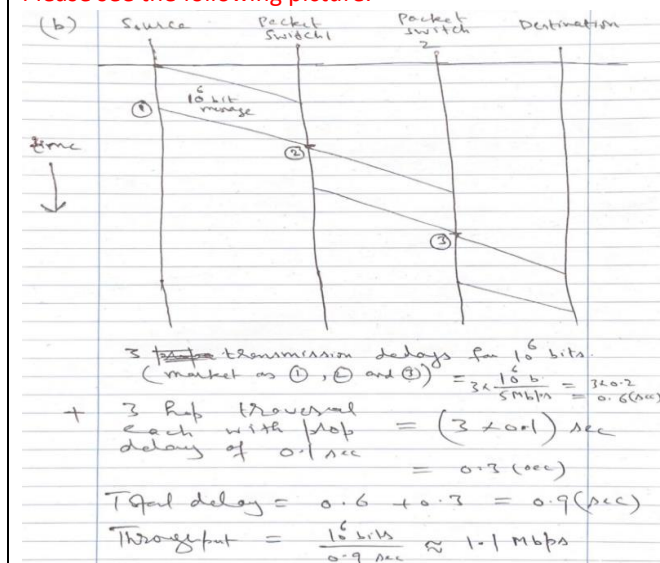 Please see the following picture.
(b) Source Packet Switch1 Packet switch 2 Destination
10^6 bit message
①
time
②
③
3 transmission delays for 10^6 bits.
(market as ①, ② and ③) = 3x 10^6 b / 5 Mbps = 3x0.2
= 0.6 (sec)
+ 3 hop traversal
each with prop = (3 x 0.1) sec
delay of 0.1 sec
= 0.3 (sec)
Total delay = 0.6 + 0.3 = 0.9 (sec)
Throughput = 10^6 bits / 0.9 sec ≈ 1.1 Mbps